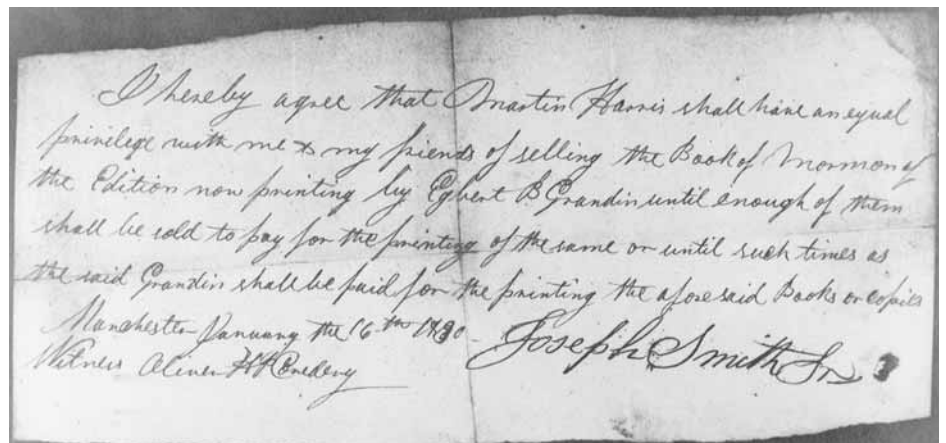 I hereby agree that Martin Harris shall have an equal
privilege with me & my friends of selling the Book of Mormon of
the Edition now printing by Egbert B Grandin until enough of them
shall be sold to pay for the printing of the same or until such times as
the said Grandin shall be paid for the printing the aforesaid Books or copies
Manchester January the 16th 1830
Witness Oliver H P Cowdery
Joseph Smith Sr